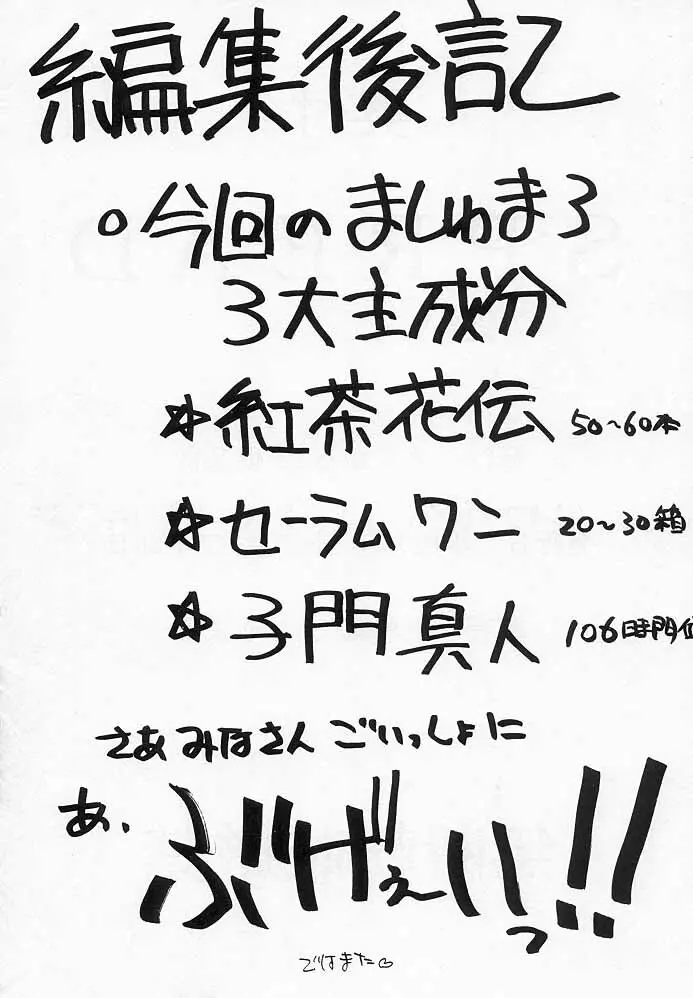 編集後記
○今回のましゅまろ
3大主成分
☆紅茶花伝 50~60本
☆セーラム ワン 20~30箱
☆子門真人 106時間位
さあ みなさん ごいっしょに
あ、ぶげぇいっ!!
ではまた♡